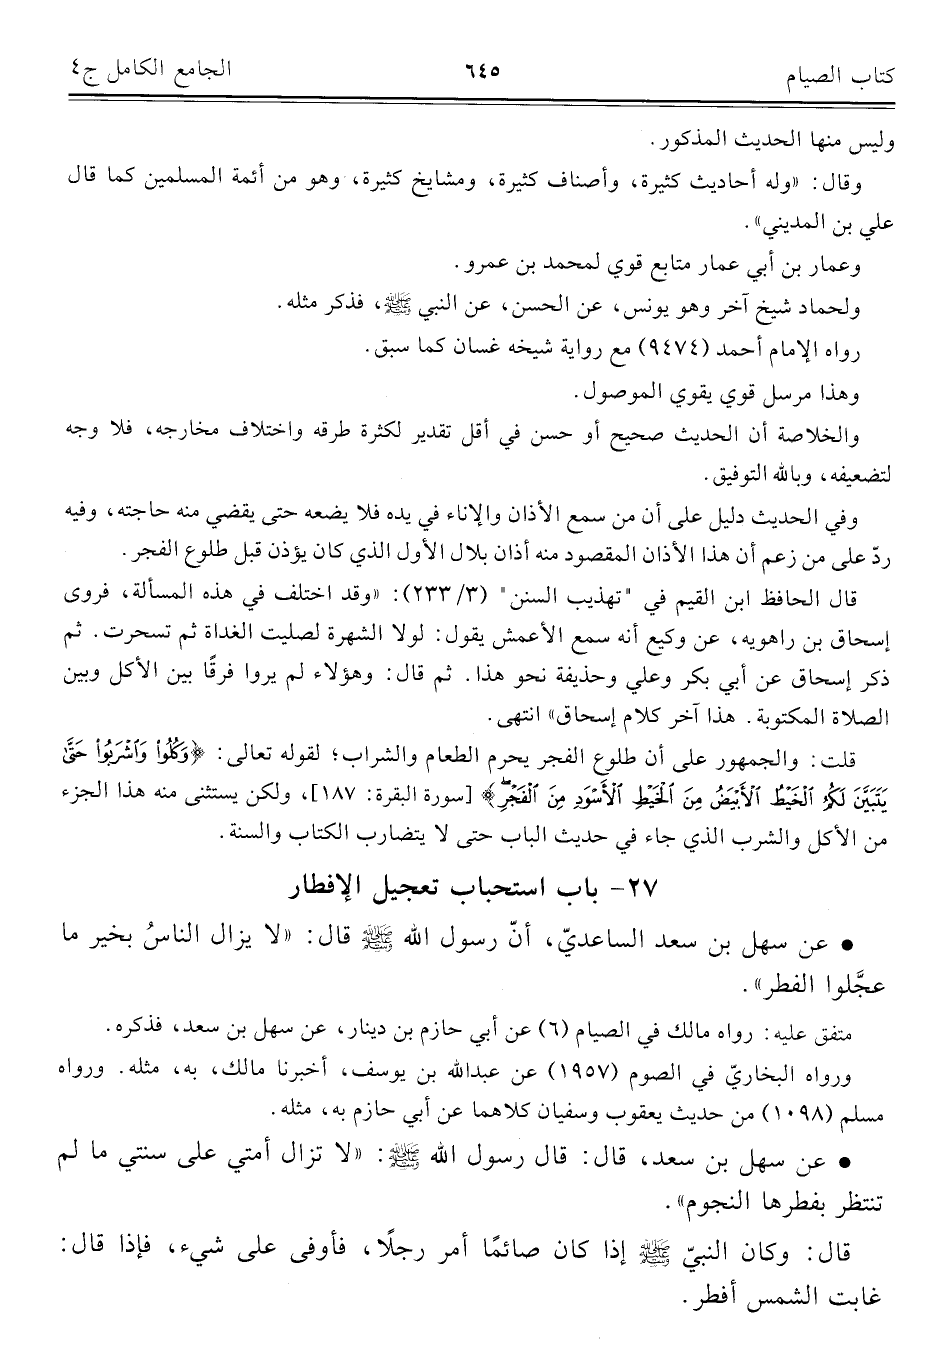 كتاب الصيام ٦٤٥ الجامع الكامل ج٤
وليس منها الحديث المذكور.
وقال: «وله أحاديث كثيرة، وأصناف كثيرة، ومشايخ كثيرة، وهو من أئمة المسلمين كما قال
علي بن المديني».
وعمار بن أبي عمار متابع قوي لمحمد بن عمرو.
ولحماد شيخ آخر وهو يونس، عن الحسن، عن النبي ﷺ، فذكر مثله.
رواه الإمام أحمد (٩٤٧٤) مع رواية شيخه غسان كما سبق.
وهذا مرسل قوي يقوي الموصول.
والخلاصة أن الحديث صحيح أو حسن في أقل تقدير لكثرة طرقه واختلاف مخارجه، فلا وجه
لتضعيفه، وبالله التوفيق.
وفي الحديث دليل على أن من سمع الأذان والإناء في يده فلا يضعه حتى يقضي منه حاجته، وفيه
ردّ على من زعم أن هذا الأذان المقصود منه أذان بلال الأول الذي كان يؤذن قبل طلوع الفجر.
قال الحافظ ابن القيم في "تهذيب السنن" (٣/ ٢٣٣): «وقد اختلف في هذه المسألة، فروى
إسحاق بن راهويه، عن وكيع أنه سمع الأعمش يقول: لولا الشهرة لصليت الغداة ثم تسحرت. ثم
ذكر إسحاق عن أبي بكر وعلي وحذيفة نحو هذا. ثم قال: وهؤلاء لم يروا فرقًا بين الأكل وبين
الصلاة المكتوبة. هذا آخر كلام إسحاق» انتهى.
قلت: والجمهور على أن طلوع الفجر يحرم الطعام والشراب؛ لقوله تعالى: ﴿وَكُلُوا۟ وَٱشْرَبُوا۟ حَتَّىٰ
يَتَبَيَّنَ لَكُمُ ٱلْخَيْطُ ٱلْأَبْيَضُ مِنَ ٱلْخَيْطِ ٱلْأَسْوَدِ مِنَ ٱلْفَجْرِ﴾ [سورة البقرة: ١٨٧]، ولكن يستثنى منه هذا الجزء
من الأكل والشرب الذي جاء في حديث الباب حتى لا يتضارب الكتاب والسنة.
٢٧- باب استحباب تعجيل الإفطار
• عن سهل بن سعد الساعديّ، أنّ رسول الله ﷺ قال: «لا يزال الناسُ بخير ما
عجَّلوا الفطر».
متفق عليه: رواه مالك في الصيام (٦) عن أبي حازم بن دينار، عن سهل بن سعد، فذكره.
ورواه البخاريّ في الصوم (١٩٥٧) عن عبدالله بن يوسف، أخبرنا مالك، به، مثله. ورواه
مسلم (١٠٩٨) من حديث يعقوب وسفيان كلاهما عن أبي حازم به، مثله.
• عن سهل بن سعد، قال: قال رسول الله ﷺ: «لا تزال أمتي على سنتي ما لم
تنتظر بفطرها النجوم».
قال: وكان النبيّ ﷺ إذا كان صائمًا أمر رجلًا، فأوفى على شيء، فإذا قال:
غابت الشمس أفطر.